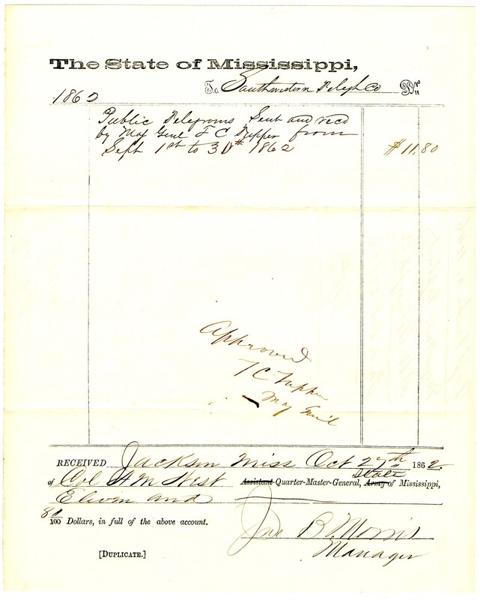 The State of Mississippi,
To Southwestern Telegh Co Dr.
1862
Public Telegrams Sent and recd
by Maj Genl T C Tupper from
Sept 1st to 30th 1862 $11.80
Approved
T C Tupper
Maj Genl
RECEIVED Jackson Miss Oct 27th 1862
of Col A M West Assistant Quarter-Master-General, State Army of Mississippi,
Eleven and
80/100 Dollars, in full of the above account.
Jno B Morris
Manager
[DUPLICATE.]